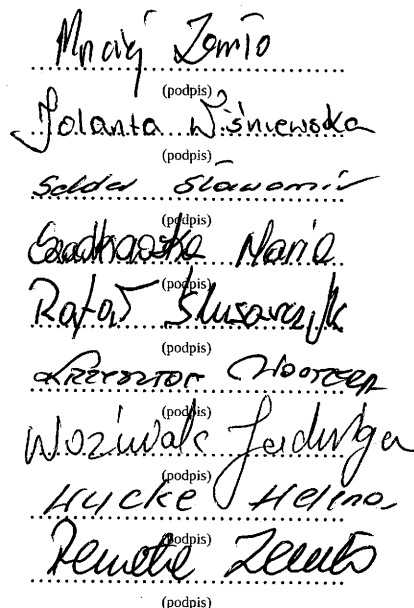 Zemło
(podpis)
Jolanta Wiśniewska
(podpis)
Sławomir
(podpis)
Maria
(podpis)
Rafał Ślusarczyk
(podpis)
Krzysztof
(podpis)
Woźniak Jadwiga
(podpis)
Hycke Helena
(podpis)
Renata Zemło
(podpis)